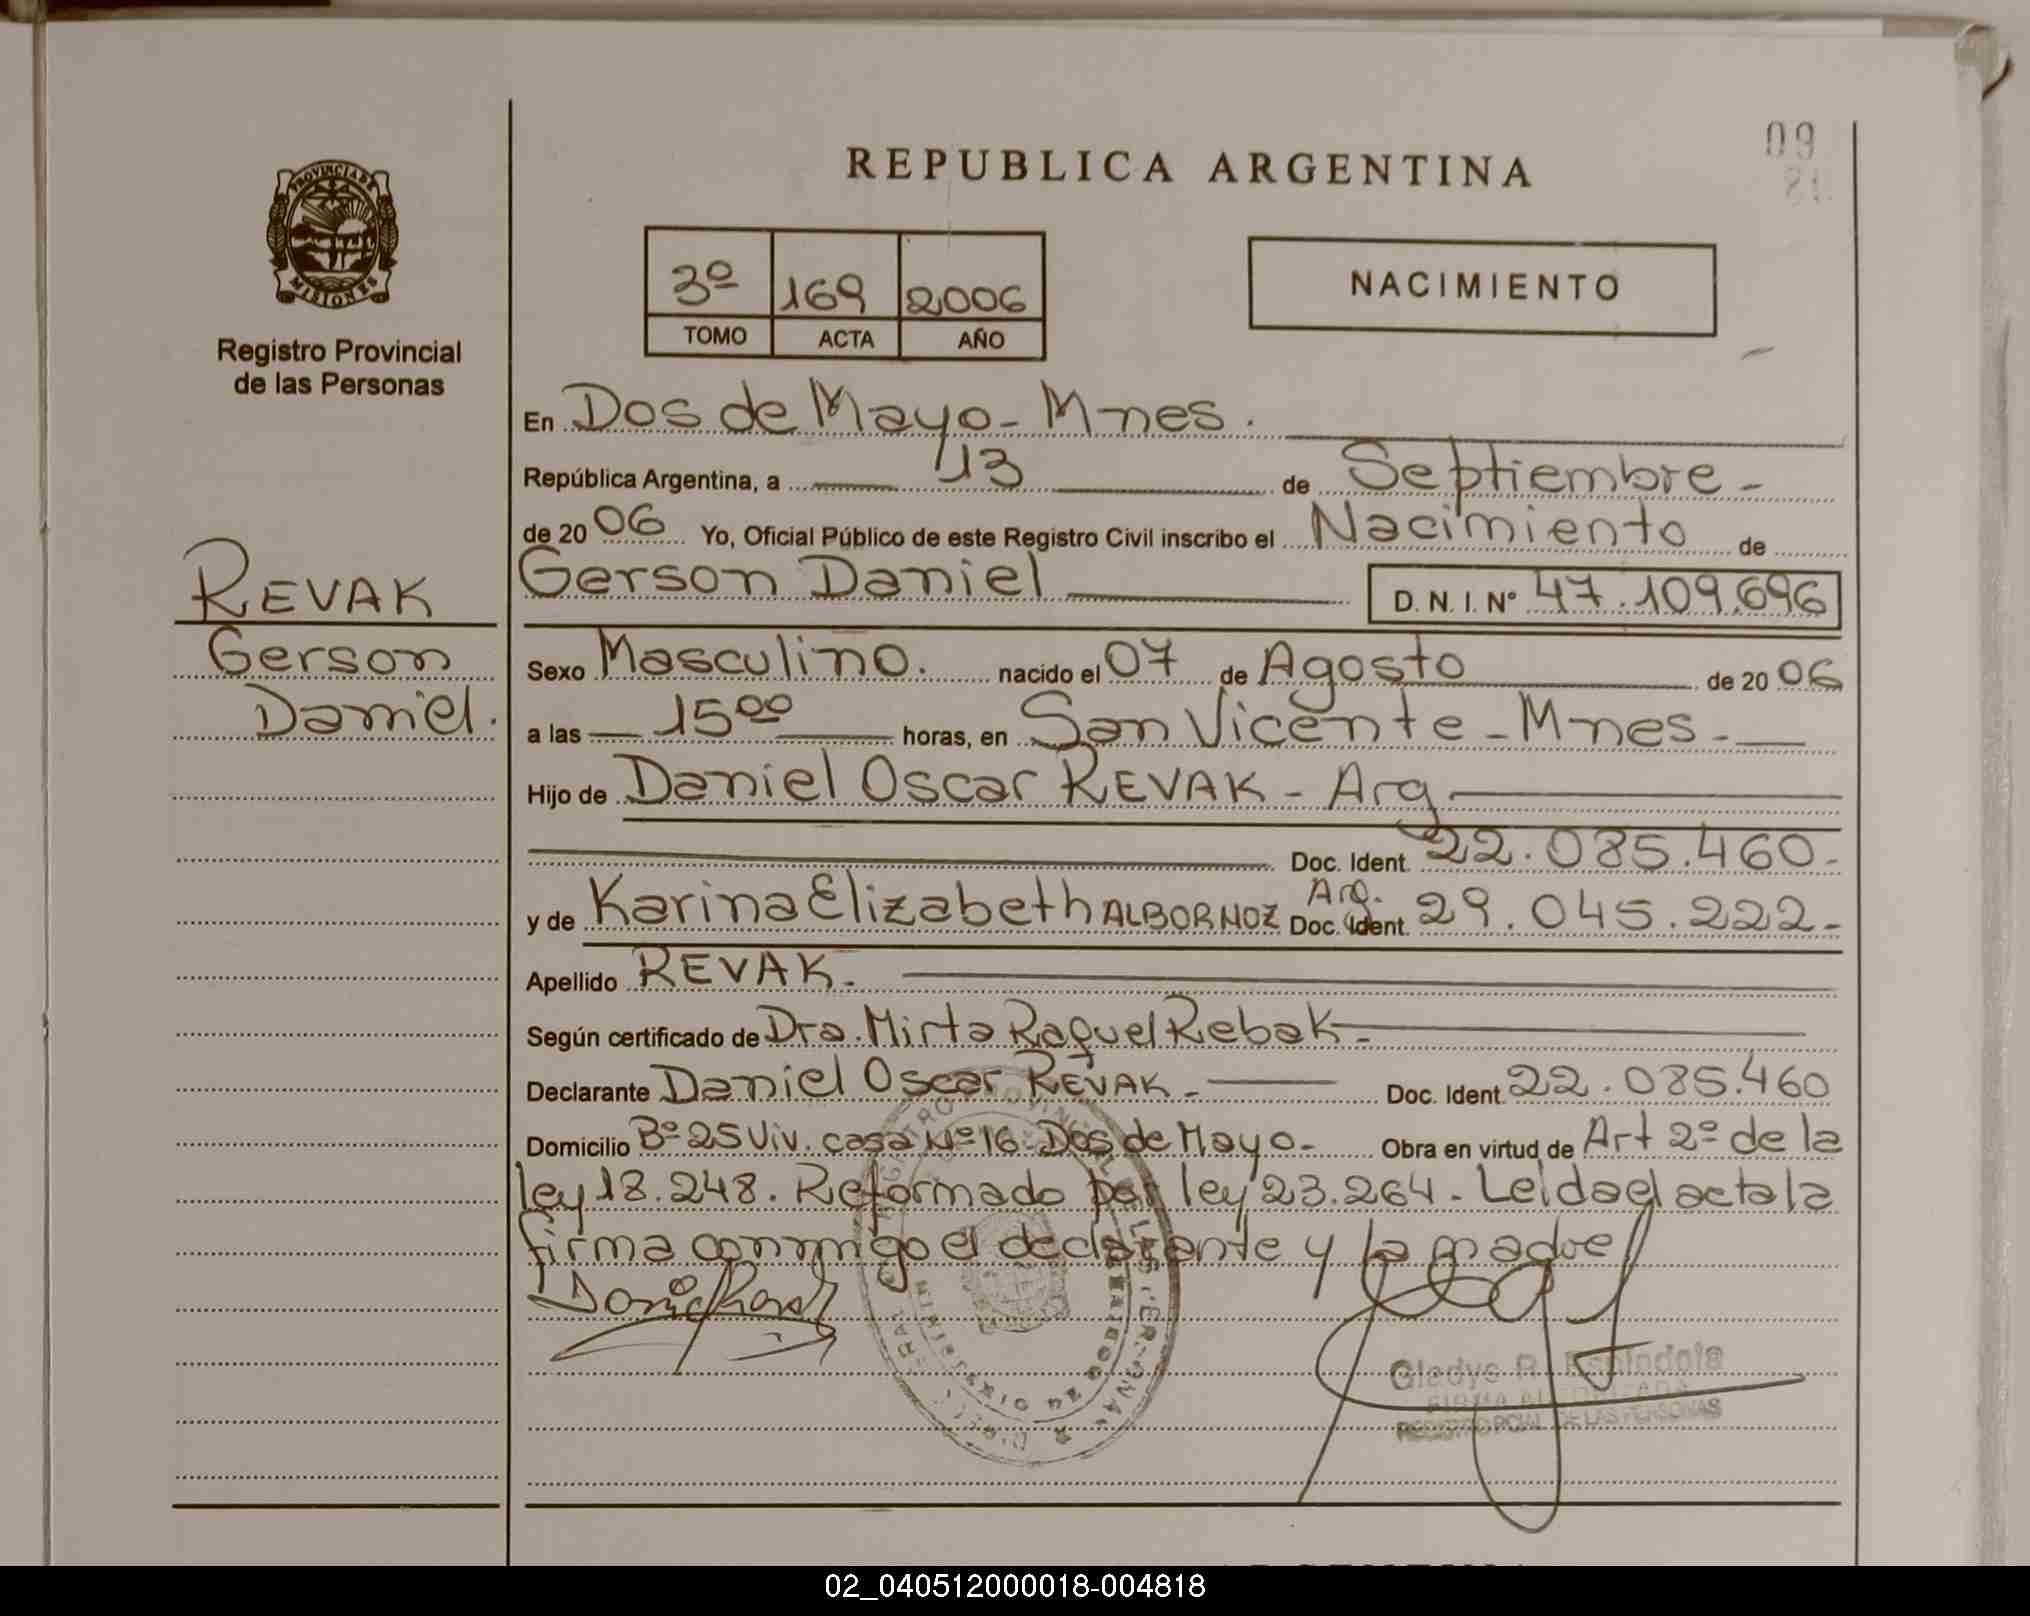 PROVINCIA DE
MISIONES
Registro Provincial
de las Personas
REVAK
Gerson
Daniel.
09
REPUBLICA ARGENTINA
3º 169 2006
TOMO ACTA AÑO
NACIMIENTO
En Dos de Mayo - Mnes.
República Argentina, a 13 de Septiembre -
de 2006 Yo, Oficial Público de este Registro Civil inscribo el Nacimiento de
Gerson Daniel D. N. I. Nº 47.109.696
Sexo Masculino. nacido el 07 de Agosto de 2006
a las 15⁰⁰ horas, en San Vicente - Mnes -
Hijo de Daniel Oscar REVAK - Arg
Doc. Ident. 22.085.460 -
y de Karina Elizabeth ALBORNOZ Arg. Doc. Ident. 29.045.222 -
Apellido REVAK -
Según certificado de Dra. Mirta Raquel Rebak -
Declarante Daniel Oscar REVAK - Doc. Ident. 22.085.460
Domicilio Bº 25 Viv. casa Nº 16 Dos de Mayo - Obra en virtud de Art 2º de la
ley 18.248. Reformado por ley 23.264 - Leída el acta la
firma conmigo el declarante y la madre
Gladys R. Espindola
FIRMA AUTORIZADA
REGISTRO PCIAL DE LAS PERSONAS
02_040512000018-004818